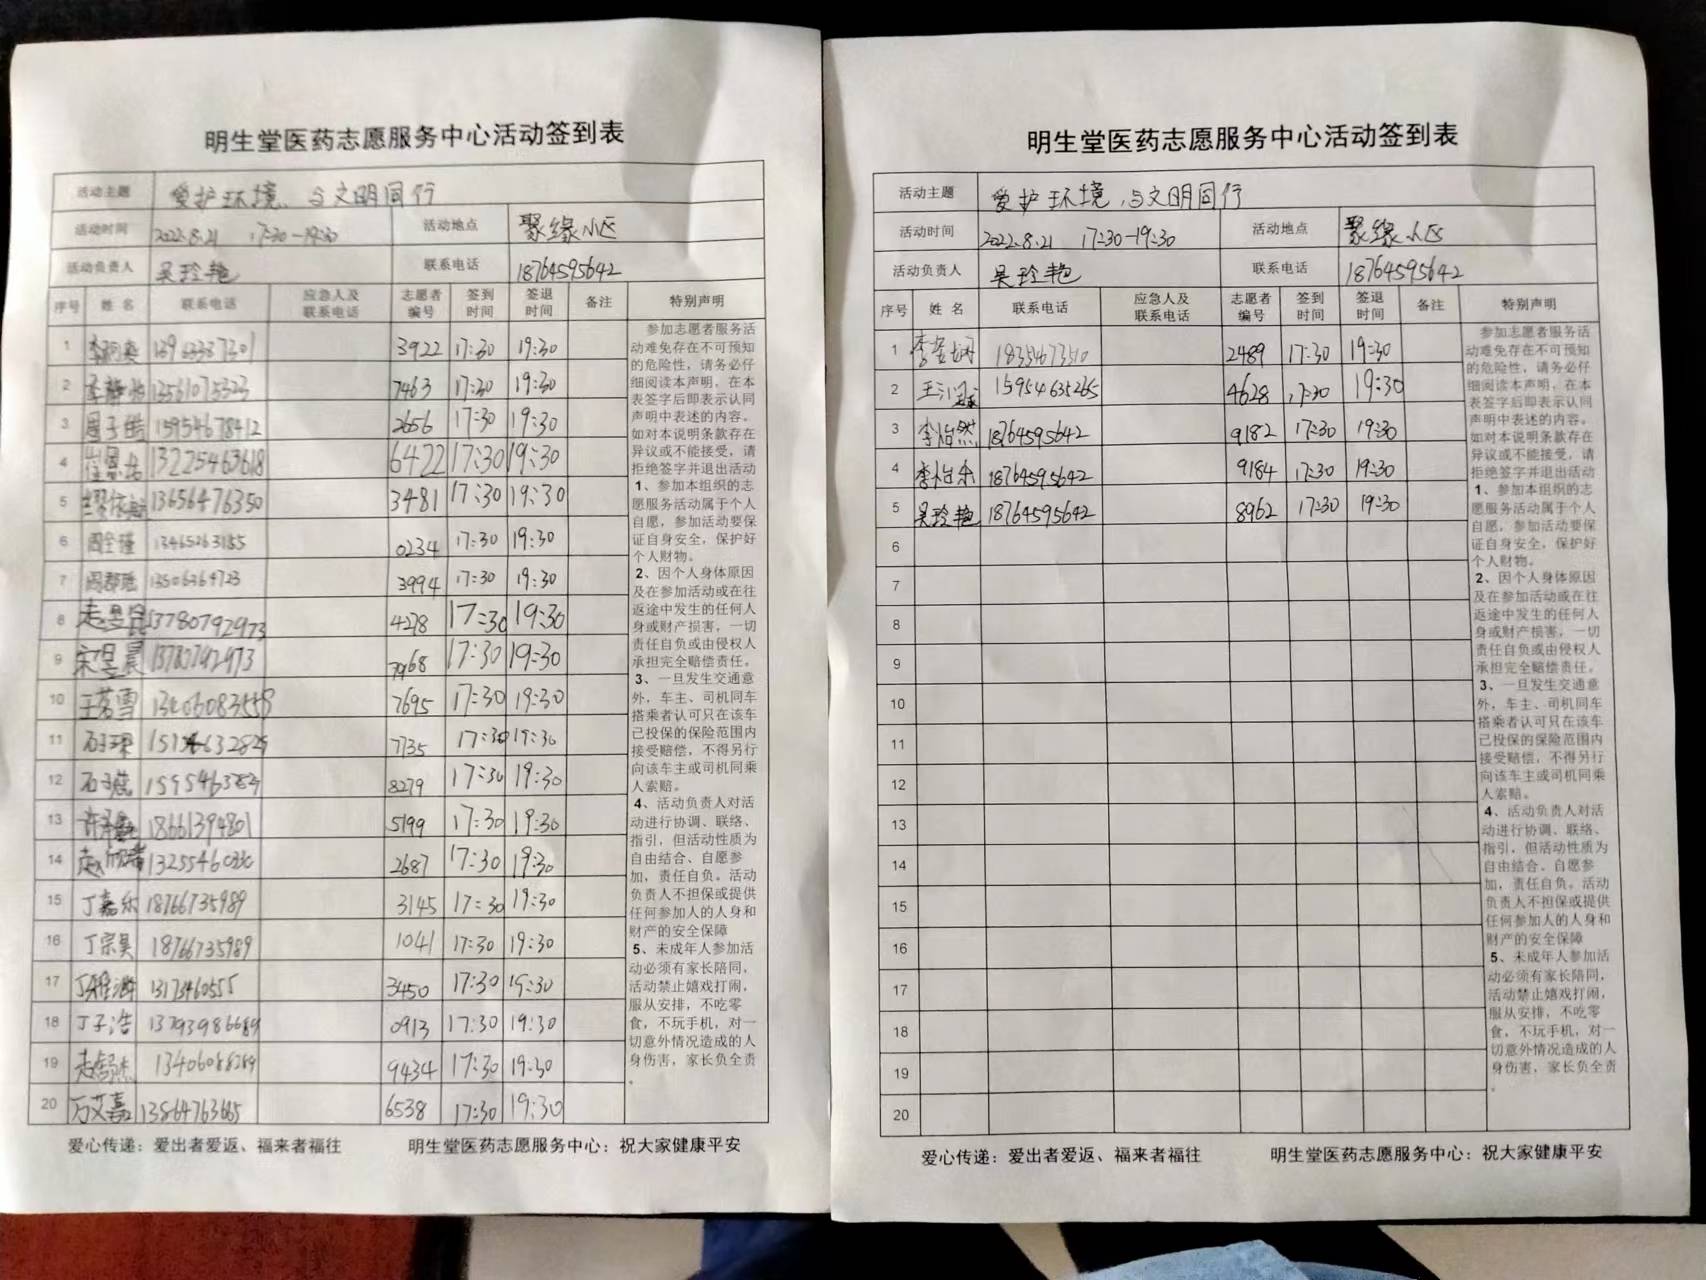 明生堂医药志愿服务中心活动签到表
活动主题 爱护环境、与文明同行
活动时间 2022.8.21 17:30-19:30 活动地点 聚缘小区
活动负责人 吴玲艳 联系电话 18764595642
序号 姓名 联系电话 应急人及联系电话 志愿者编号 签到时间 签退时间 备注 特别声明
1 3922 17:30 19:30
2 13561075323 7463 17:30 19:30
3 周子皓 15954678412 2656 17:30 19:30
4 13225463618 6422 17:30 19:30
5 13656476350 3481 17:30 19:30
6 13465263155 0234 17:30 19:30
7 13506364723 3994 17:30 19:30
8 13780792973 4278 17:30 19:30
9 宋昱晨 13780792973 7968 17:30 19:30
10 王若雪 7695 17:30 19:30
11 7735 17:30 19:30
12 8279 17:30 19:30
13 18661394801 5199 17:30 19:30
14 2687 17:30 19:30
15 丁嘉乐 18766735989 3145 17:30 19:30
16 丁宗昊 18766735989 1041 17:30 19:30
17 3450 17:30 19:30
18 丁子浩 13793986689 0913 17:30 19:30
19 13406088289 9434 17:30 19:30
20 万艾嘉 13864763665 6538 17:30 19:30
参加志愿者服务活
动难免存在不可预知
的危险性，请务必仔
细阅读本声明，在本
表签字后即表示认同
声明中表述的内容。
如对本说明条款存在
异议或不能接受，请
拒绝签字并退出活动
1、参加本组织的志
愿服务活动属于个人
自愿，参加活动要保
证自身安全，保护好
个人财物。
2、因个人身体原因
及在参加活动或在往
返途中发生的任何人
身或财产损害，一切
责任自负或由侵权人
承担完全赔偿责任。
3、一旦发生交通意
外，车主、司机同车
搭乘者认可只在该车
已投保的保险范围内
接受赔偿，不得另行
向该车主或司机同乘
人索赔。
4、活动负责人对活
动进行协调、联络、
指引，但活动性质为
自由结合、自愿参
加，责任自负。活动
负责人不担保或提供
任何参加人的人身和
财产的安全保障
5、未成年人参加活
动必须有家长陪同，
活动禁止嬉戏打闹，
服从安排，不吃零
食，不玩手机，对一
切意外情况造成的人
身伤害，家长负全责
。
爱心传递：爱出者爱返、福来者福往 明生堂医药志愿服务中心：祝大家健康平安
明生堂医药志愿服务中心活动签到表
活动主题 爱护环境、与文明同行
活动时间 2022.8.21 17:30-19:30 活动地点 聚缘小区
活动负责人 吴玲艳 联系电话 18764595642
序号 姓名 联系电话 应急人及联系电话 志愿者编号 签到时间 签退时间 备注 特别声明
1 2489 17:30 19:30
2 15954635265 4628 17:30 19:30
3 李怡然 18764595642 9182 17:30 19:30
4 李怡乐 18764595642 9184 17:30 19:30
5 吴玲艳 18764595642 8962 17:30 19:30
6
7
8
9
10
11
12
13
14
15
16
17
18
19
20
参加志愿者服务活
动难免存在不可预知
的危险性，请务必仔
细阅读本声明，在本
表签字后即表示认同
声明中表述的内容。
如对本说明条款存在
异议或不能接受，请
拒绝签字并退出活动
1、参加本组织的志
愿服务活动属于个人
自愿，参加活动要保
证自身安全，保护好
个人财物。
2、因个人身体原因
及在参加活动或在往
返途中发生的任何人
身或财产损害，一切
责任自负或由侵权人
承担完全赔偿责任。
3、一旦发生交通意
外，车主、司机同车
搭乘者认可只在该车
已投保的保险范围内
接受赔偿，不得另行
向该车主或司机同乘
人索赔。
4、活动负责人对活
动进行协调、联络、
指引，但活动性质为
自由结合、自愿参
加，责任自负。活动
负责人不担保或提供
任何参加人的人身和
财产的安全保障
5、未成年人参加活
动必须有家长陪同，
活动禁止嬉戏打闹，
服从安排，不吃零
食，不玩手机，对一
切意外情况造成的人
身伤害，家长负全责
。
爱心传递：爱出者爱返、福来者福往 明生堂医药志愿服务中心：祝大家健康平安